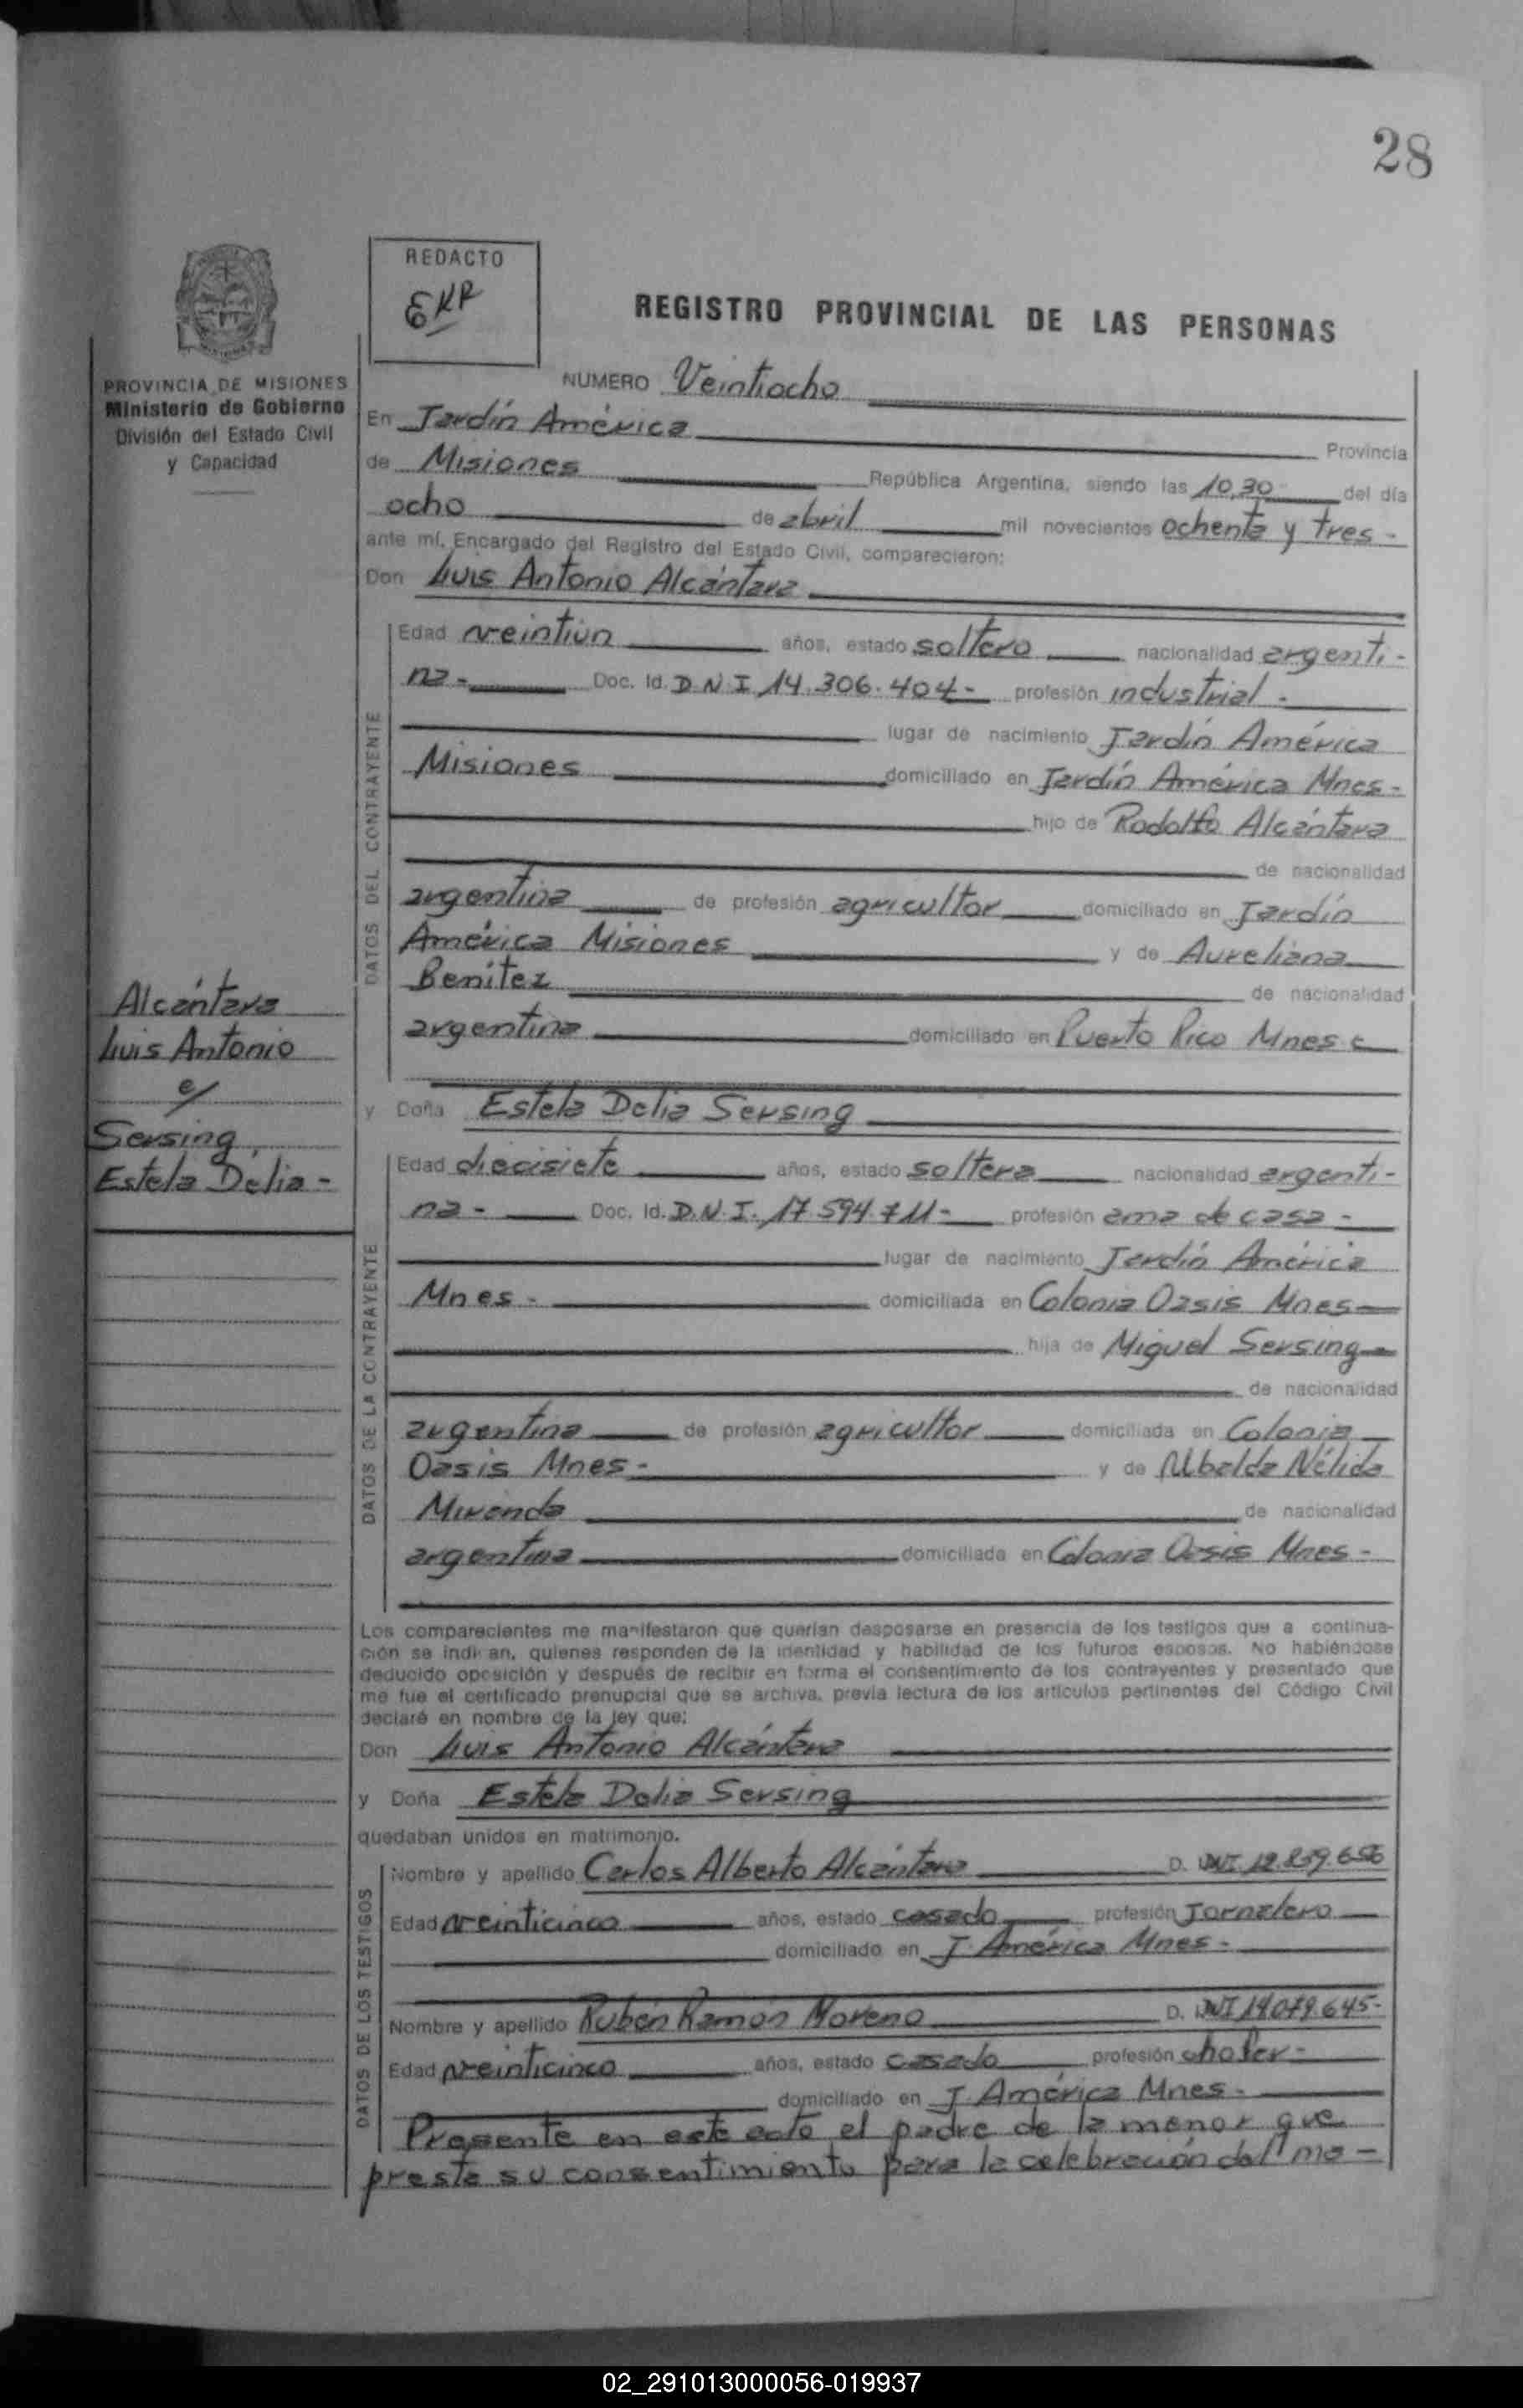 28
REDACTO
EKR
REGISTRO PROVINCIAL DE LAS PERSONAS
PROVINCIA DE MISIONES
Ministerio de Gobierno
División del Estado Civil
y Capacidad
Alcántara
Luis Antonio
c/
Sersing,
Estela Delia -
NUMERO Veintiocho
En Jardín América Provincia
de Misiones República Argentina, siendo las 10,30 del día
ocho de abril mil novecientos ochenta y tres -
ante mí, Encargado del Registro del Estado Civil, comparecieron:
Don Luis Antonio Alcántara
DATOS DEL CONTRAYENTE
Edad veintiun años, estado soltero nacionalidad argenti-
na - Doc. Id. D.N.I 14.306.404 - profesión industrial -
lugar de nacimiento Jardín América
Misiones domiciliado en Jardín América Mnes -
hijo de Rodolfo Alcántara
de nacionalidad
argentina de profesión agricultor domiciliado en Jardín
América Misiones y de Aureliana
Benitez de nacionalidad
argentina domiciliado en Puerto Rico Mnes
y Doña Estela Delia Sersing
DATOS DE LA CONTRAYENTE
Edad diecisiete años, estado soltera nacionalidad argenti-
na - Doc. Id. D.N.I. 17.594.711 - profesión ama de casa -
lugar de nacimiento Jardín América
Mnes - domiciliada en Colonia Oasis Mnes
hija de Miguel Sersing
de nacionalidad
argentina de profesión agricultor domiciliada en Colonia
Oasis Mnes - y de Ubalda Nélida
Miranda de nacionalidad
argentina domiciliada en Colonia Oasis Mnes -
Los comparecientes me manifestaron que querían desposarse en presencia de los testigos que a continua-
ción se indican, quienes responden de la identidad y habilidad de los futuros esposos. No habiéndose
deducido oposición y después de recibir en forma el consentimiento de los contrayentes y presentado que
me fue el certificado prenupcial que se archiva, previa lectura de los artículos pertinentes del Código Civil
declaré en nombre de la ley que:
Don Luis Antonio Alcántara
y Doña Estela Delia Sersing
quedaban unidos en matrimonio.
DATOS DE LOS TESTIGOS
Nombre y apellido Carlos Alberto Alcántara D. DNI 12.859.656
Edad veinticinco años, estado casado profesión Jornalero
domiciliado en J. América Mnes -
Nombre y apellido Rubén Ramón Moreno D. DNI 14.079.645-
Edad veinticinco años, estado casado profesión chofer -
domiciliado en J América Mnes -
Presente en este acto el padre de la menor que
presta su consentimiento para la celebración del ma -
02_291013000056-019937